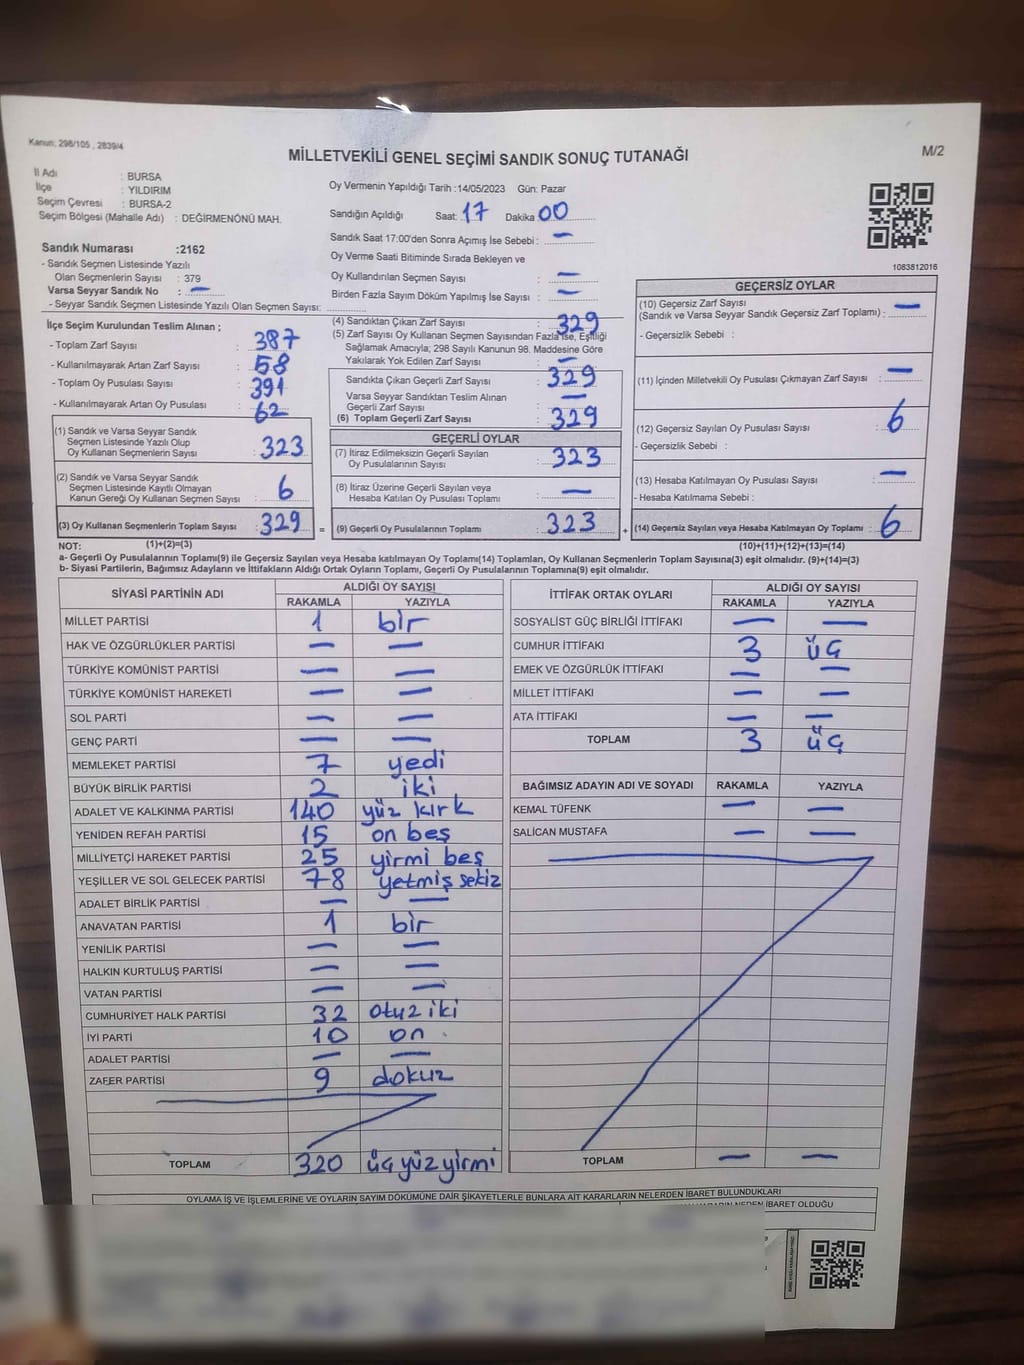 Kanun: 298/105 , 2839/4
MİLLETVEKİLİ GENEL SEÇİMİ SANDIK SONUÇ TUTANAĞI
M/2
İl Adı : BURSA
İlçe : YILDIRIM
Seçim Çevresi : BURSA-2
Seçim Bölgesi (Mahalle Adı) : DEĞİRMENÖNÜ MAH.
Sandık Numarası :2162
- Sandık Seçmen Listesinde Yazılı
Olan Seçmenlerin Sayısı : 379
Varsa Seyyar Sandık No : —
- Seyyar Sandık Seçmen Listesinde Yazılı Olan Seçmen Sayısı:
Oy Vermenin Yapıldığı Tarih :14/05/2023 Gün: Pazar
Sandığın Açıldığı Saat: 17 Dakika 00
Sandık Saat 17:00'den Sonra Açımış İse Sebebi : —
Oy Verme Saati Bitiminde Sırada Bekleyen ve
Oy Kullandırılan Seçmen Sayısı : —
Birden Fazla Sayım Döküm Yapılmış İse Sayısı : —
1083812016
İlçe Seçim Kurulundan Teslim Alınan ;
- Toplam Zarf Sayısı : 387
- Kullanılmayarak Artan Zarf Sayısı : 58
- Toplam Oy Pusulası Sayısı : 391
- Kullanılmayarak Artan Oy Pusulası : 62
(1) Sandık ve Varsa Seyyar Sandık
Seçmen Listesinde Yazılı Olup
Oy Kullanan Seçmenlerin Sayısı : 323
(2) Sandık ve Varsa Seyyar Sandık
Seçmen Listesinde Kayıtlı Olmayan
Kanun Gereği Oy Kullanan Seçmen Sayısı : 6
(3) Oy Kullanan Seçmenlerin Toplam Sayısı : 329 =
(4) Sandıktan Çıkan Zarf Sayısı : 329
(5) Zarf Sayısı Oy Kullanan Seçmen Sayısından Fazla İse, Eşitliği
Sağlamak Amacıyla; 298 Sayılı Kanunun 98. Maddesine Göre
Yakılarak Yok Edilen Zarf Sayısı : —
Sandıkta Çıkan Geçerli Zarf Sayısı : 329
Varsa Seyyar Sandıktan Teslim Alınan
Geçerli Zarf Sayısı : —
(6) Toplam Geçerli Zarf Sayısı : 329
GEÇERLİ OYLAR
(7) İtiraz Edilmeksizin Geçerli Sayılan
Oy Pusulalarının Sayısı : 323
(8) İtiraz Üzerine Geçerli Sayılan veya
Hesaba Katılan Oy Pusulası Toplamı : —
(9) Geçerli Oy Pusulalarının Toplamı : 323 +
GEÇERSİZ OYLAR
(10) Geçersiz Zarf Sayısı
(Sandık ve Varsa Seyyar Sandık Geçersiz Zarf Toplamı) : —
- Geçersizlik Sebebi :
(11) İçinden Milletvekili Oy Pusulası Çıkmayan Zarf Sayısı : —
(12) Geçersiz Sayılan Oy Pusulası Sayısı : 6
- Geçersizlik Sebebi :
(13) Hesaba Katılmayan Oy Pusulası Sayısı : —
- Hesaba Katılmama Sebebi :
(14) Geçersiz Sayılan veya Hesaba Katılmayan Oy Toplamı : 6
NOT: (1)+(2)=(3) (10)+(11)+(12)+(13)=(14)
a- Geçerli Oy Pusulalarının Toplamı(9) ile Geçersiz Sayılan veya Hesaba katılmayan Oy Toplamı(14) Toplamları, Oy Kullanan Seçmenlerin Toplam Sayısına(3) eşit olmalıdır. (9)+(14)=(3)
b- Siyasi Partilerin, Bağımsız Adayların ve İttifakların Aldığı Ortak Oyların Toplamı, Geçerli Oy Pusulalarının Toplamına(9) eşit olmalıdır.
SİYASİ PARTİNİN ADI ALDIĞI OY SAYISI
RAKAMLA YAZIYLA
MİLLET PARTİSİ 1 bir
HAK VE ÖZGÜRLÜKLER PARTİSİ — —
TÜRKİYE KOMÜNİST PARTİSİ — —
TÜRKİYE KOMÜNİST HAREKETİ — —
SOL PARTİ — —
GENÇ PARTİ — —
MEMLEKET PARTİSİ 7 yedi
BÜYÜK BİRLİK PARTİSİ 2 iki
ADALET VE KALKINMA PARTİSİ 140 yüz kırk
YENİDEN REFAH PARTİSİ 15 on beş
MİLLİYETÇİ HAREKET PARTİSİ 25 yirmi beş
YEŞİLLER VE SOL GELECEK PARTİSİ 78 yetmiş sekiz
ADALET BİRLİK PARTİSİ — —
ANAVATAN PARTİSİ 1 bir
YENİLİK PARTİSİ — —
HALKIN KURTULUŞ PARTİSİ — —
VATAN PARTİSİ — —
CUMHURİYET HALK PARTİSİ 32 otuz iki
İYİ PARTİ 10 on
ADALET PARTİSİ — —
ZAFER PARTİSİ 9 dokuz
TOPLAM 320 üç yüz yirmi
İTTİFAK ORTAK OYLARI ALDIĞI OY SAYISI
RAKAMLA YAZIYLA
SOSYALİST GÜÇ BİRLİĞİ İTTİFAKI — —
CUMHUR İTTİFAKI 3 üç
EMEK VE ÖZGÜRLÜK İTTİFAKI — —
MİLLET İTTİFAKI — —
ATA İTTİFAKI — —
TOPLAM 3 üç
BAĞIMSIZ ADAYIN ADI VE SOYADI RAKAMLA YAZIYLA
KEMAL TÜFENK — —
SALİCAN MUSTAFA — —
TOPLAM — —
OYLAMA İŞ VE İŞLEMLERİNE VE OYLARIN SAYIM DÖKÜMÜNE DAİR ŞİKAYETLERLE BUNLARA AİT KARARLARIN NELERDEN İBARET BULUNDUKLARI
İBARET OLDUĞU